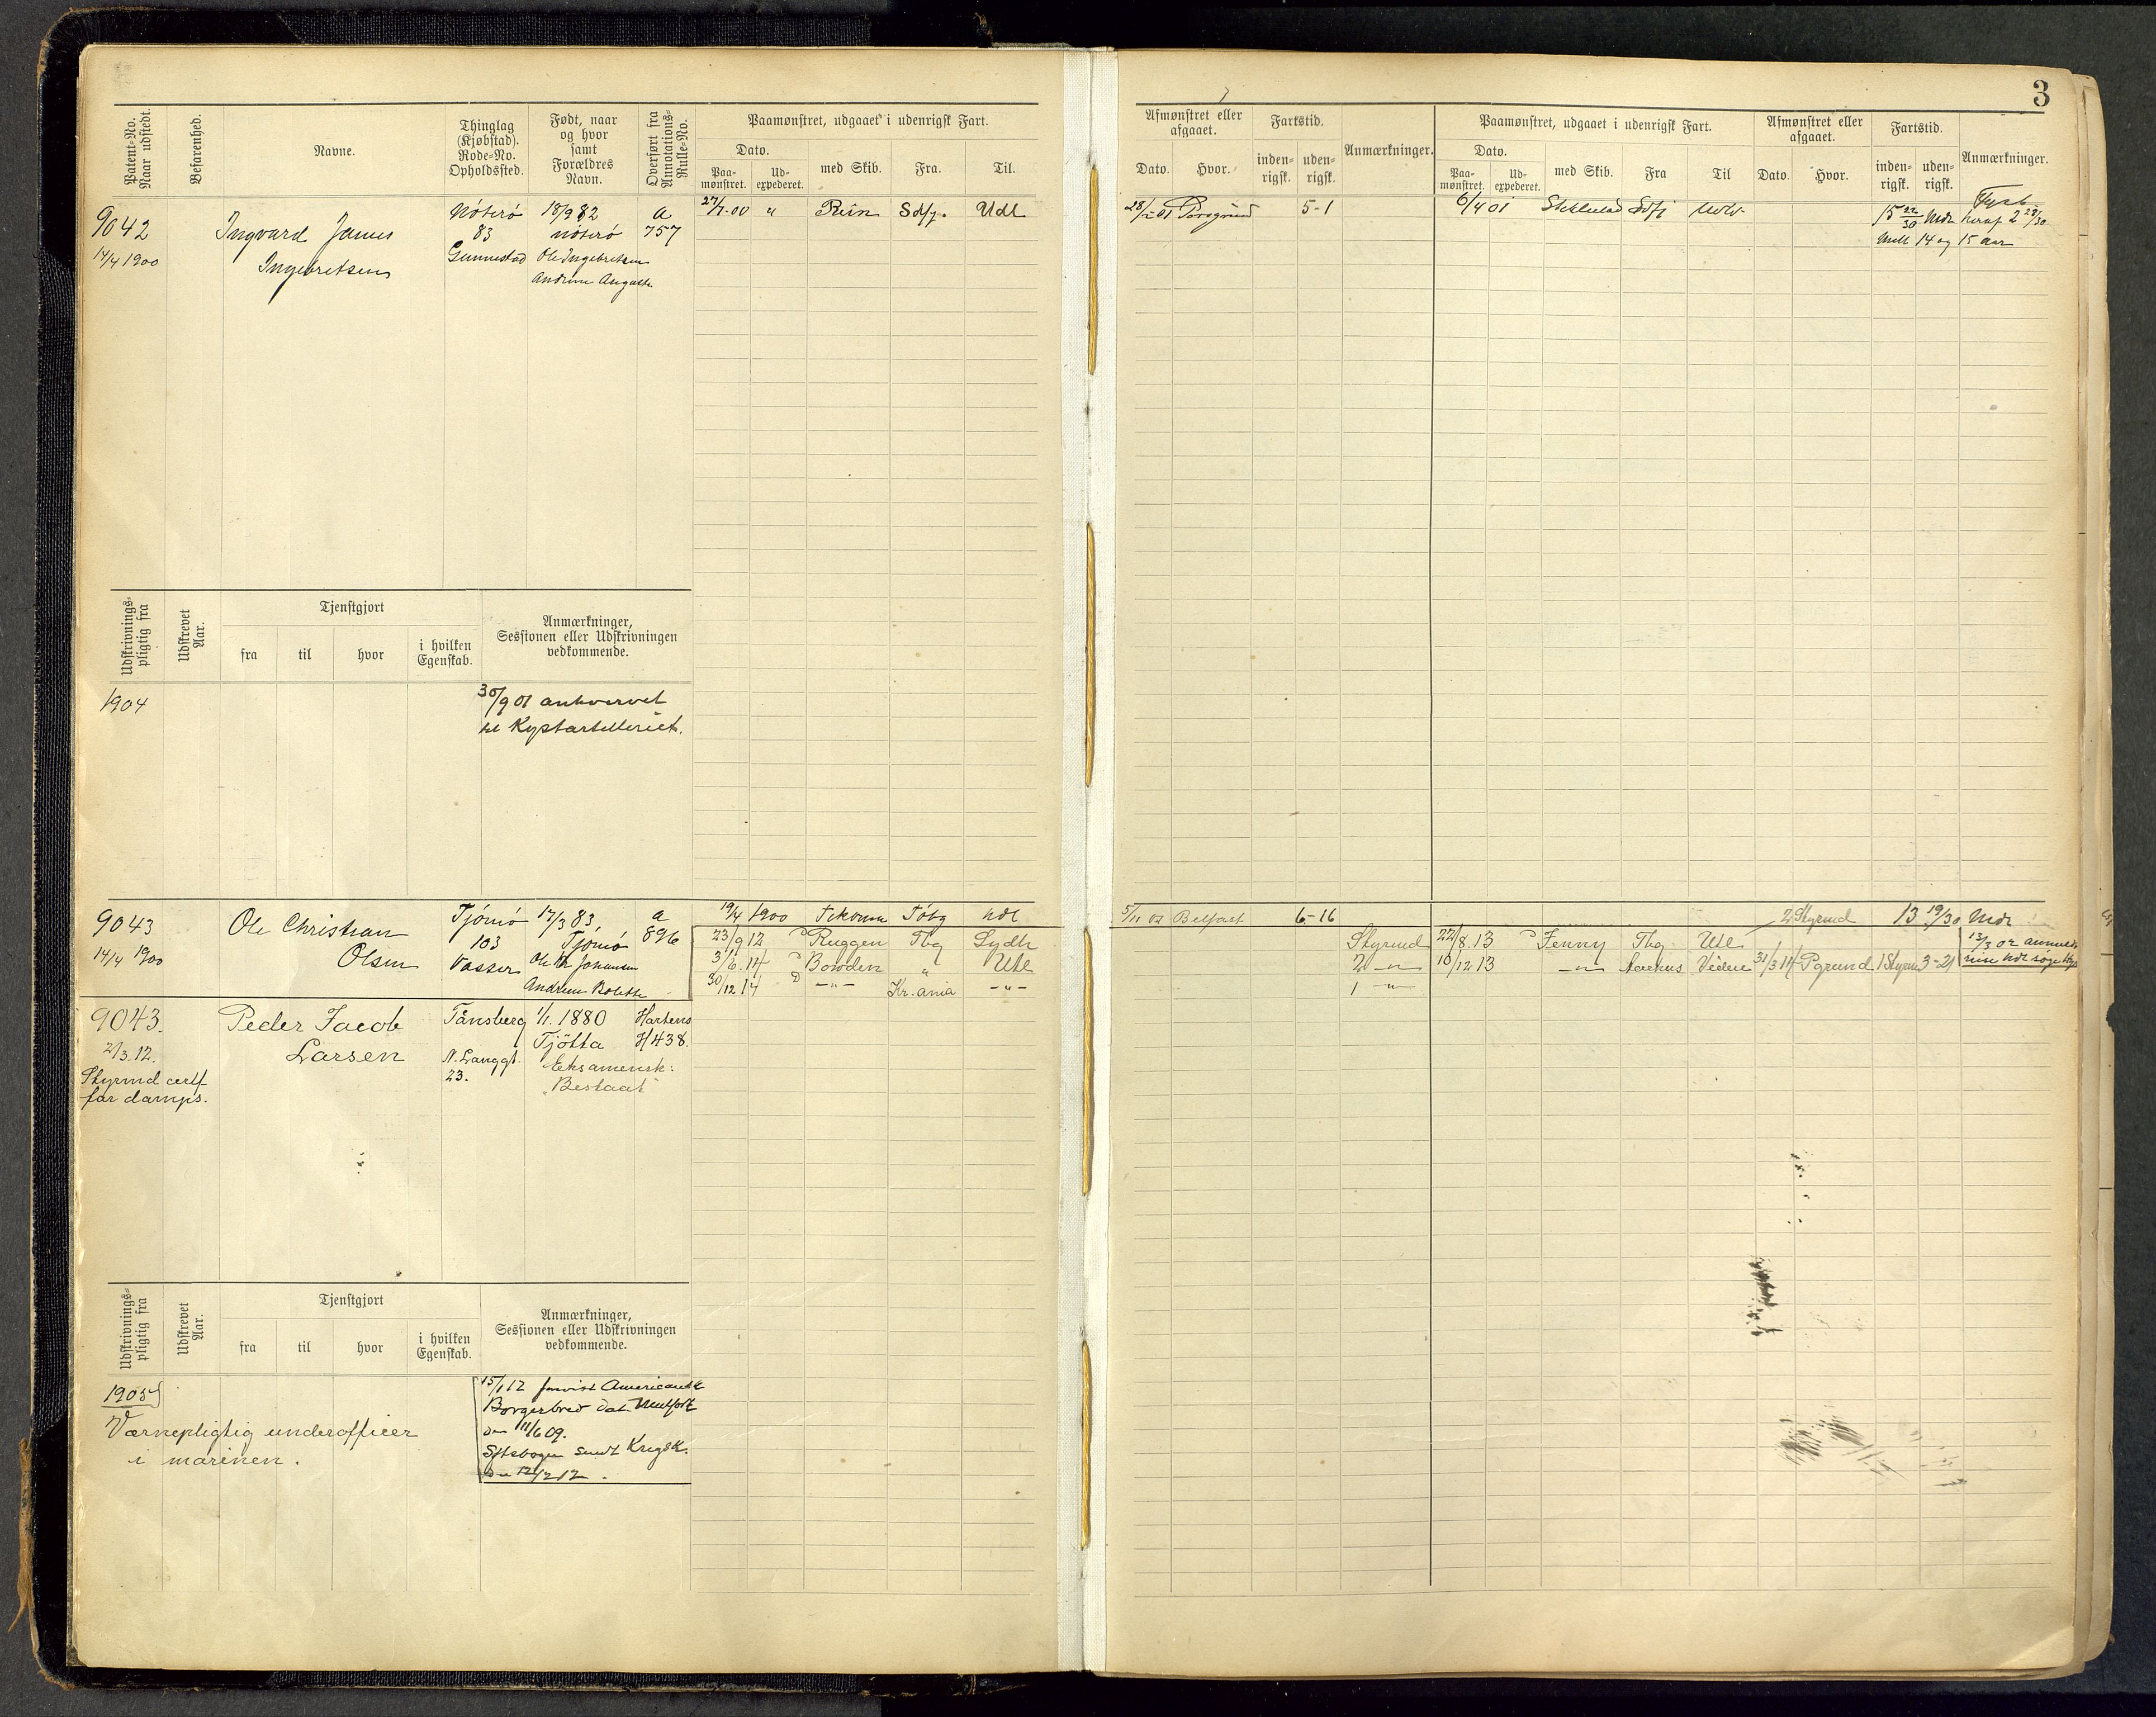 3
Patent-No. Naar udstedt.
Befarenhed.
Navne.
Thinglag (Kjøbstad). Rode-No. Opholdssted.
Født, naar og hvor samt Forældres Navn.
Overført fra Annotations-Rulle-No.
Paamønstret, udgaaet i udenrigsk Fart.
Dato.
Paa-mønstret.
Ud-expederet.
med Skib.
Fra.
Til.
Afmønstret eller afgaaet.
Dato.
Hvor.
Fartstid.
inden-rigsk.
uden-rigsk.
Anmærkninger.
Paamønstret, udgaaet i udenrigsk Fart.
Dato.
Paa-mønstret.
Ud-expederet.
med Skib.
Fra
Til
Afmønstret eller afgaaet.
Dato.
Hvor.
Fartstid.
inden-rigsk.
uden-rigsk.
Anmærkninger.
9042
14/4 1900
Ingvard James
Ingebretsen
Nöterö
83
Gunnestad
18/9 82
Nöterö
Ole Ingebretsen
Andrine Auguste
a
757
27/7.00 " Ruin Sdfj. Udl
28/2 01 Porsgrund 5-1
6/4 01 Stiklestad Sdfj Udl
Fyrb
15 22/30 Mdr heraf 2 28/30
Mell 14 og 15 aar
Udskrivnings-pligtig fra
Udskrevet Aar.
Tjenstgjort
fra
til
hvor
i hvilken Egenskab.
Anmærkninger, Sessionen eller Udskrivningen vedkommende.
1904
30/9 01 anhvervet
til Kystartilleriet.
9043
14/4 1900
Ole Christian
Olsen
Tjömö
103
Vasser
17/3 83,
Tjömö
Ole Kr Johansen
Andrine Bolette
a
896
19/4 1900 Tekoma Töbg Udl
23/9 12 D Ruggen Tbg Sydh
3/6.14 D Bowden " Utl
30/12 14 D -"- Kr.ania -"-
5/11 02 Belfast 6-16
Styrmd
2 -"-
1 "
22/8.13 D Jenny Tbg Utl
10/12 13 -"- Aarhus Videre 31/3 14 Pgrund 1 Styrm 3-21
2 Styrmd 13 19/30 Mdr
13/3 02 anmeldt
9043.
2/3.12.
Styrmd certf
for damps.
Peder Jacob
Larsen
Tånsberg
N. Langgt.
23.
1/1. 1880
Tjötta
Eksamensk:
"Bestaat"
Hortens
H 438.
Udskrivnings-pligtig fra
Udskrevet Aar.
Tjenstgjort
fra
til
hvor
i hvilken Egenskab.
Anmærkninger, Sessionen eller Udskrivningen vedkommende.
1905
Værnepligtig underofficer
i marinen.
15/1 12 forvist Americansk
Borgerbrev dat
den 11/6 09.
Sftsbogen sendt Krigsk.
den 12/2 12.